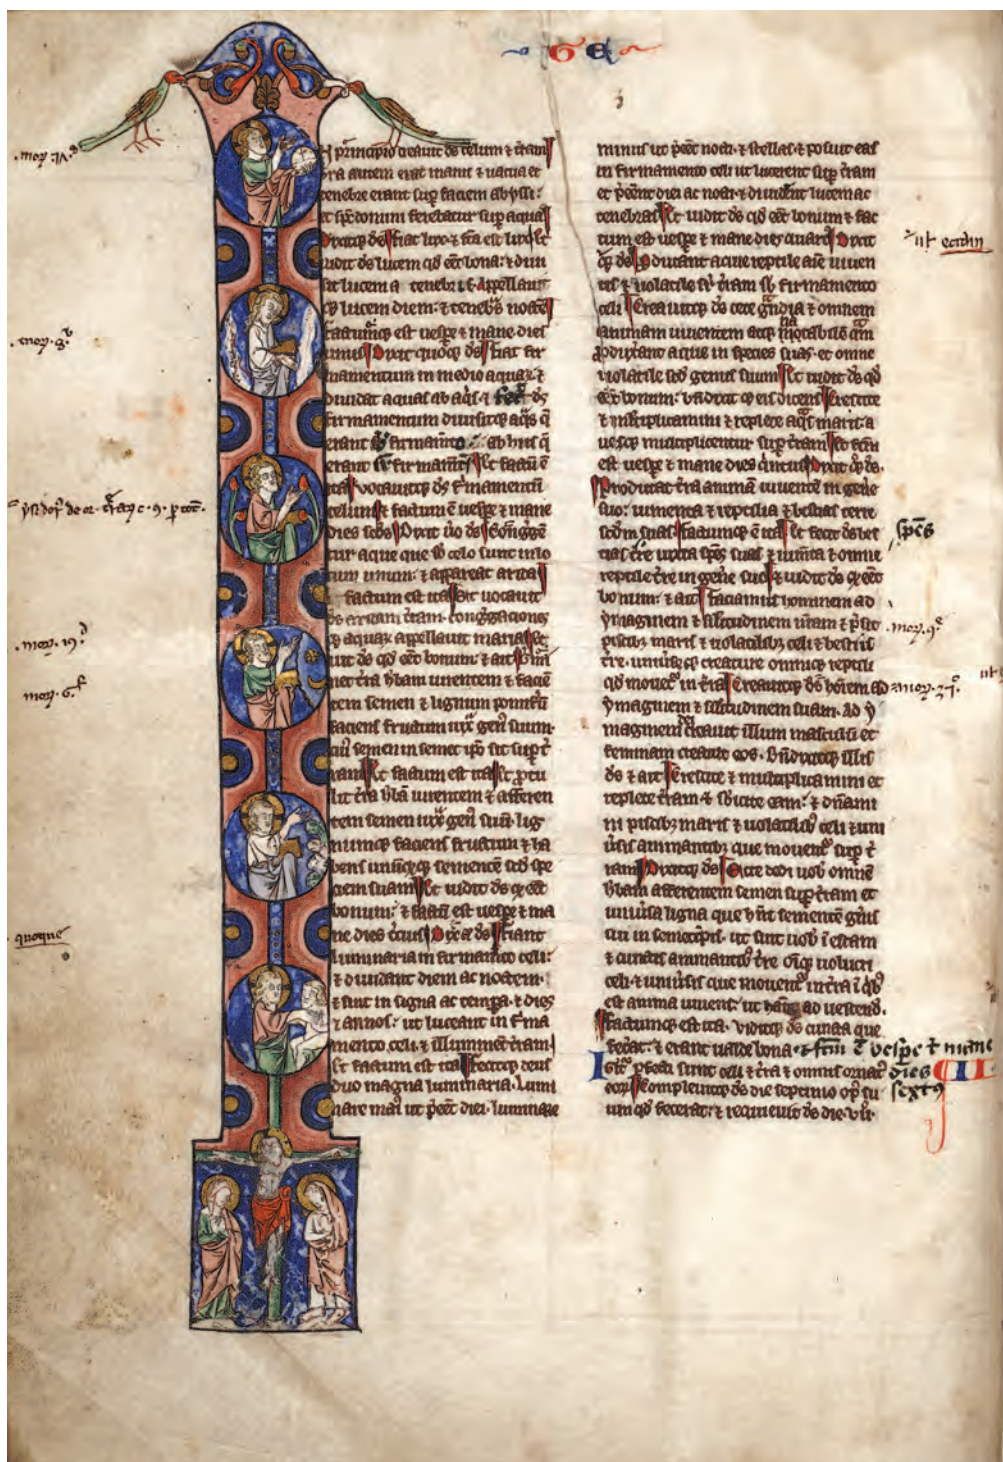 Ge
N principio creauit ds celum ⁊ t̄ram
t̄ra autem erat inanis ⁊ uacua et
tenebre erant sup faciem abyssi:
et sps domini ferebatur sup aquas
Dixitq; ds fiat lux ⁊ fc̄a est lux Et
uidit ds lucem qd eēt bona: ⁊ diui
sit lucem a tenebris Appellauit
q; lucem diem: ⁊ tenebras noctem
factumq; est uespe ⁊ mane dies
unus Dixit quoq; ds fiat fir
mamentum in medio aquar ⁊
diuidat aquas ab aqis ⁊ fecit ds
firmamentum diuisitq; aqas q̄
erant firmam̄to ab hiis q̄
erant firmam̄tū Et factū ē
ita vocauitq; ds firmamentū
celum ⁊ factum ē uespe ⁊ mane
dies scds Dixit ūo ds Congrege
tur aque que sb celo sunt in lo
cum unum: ⁊ appareat arida
factum est ita Et uocauit
ds aridam t̄ram. congregaciones
q; aquar appellauit maria Et
uidit ds qd eēt bonum: ⁊ ait Germi
net t̄ra hbam uirentem ⁊ faciē
tem semen ⁊ lignum pomiferū
faciens fructum iux gens suum.
cuius semen in semet ipo sit sup t̄
ram Et factum est ita Et protu
lit t̄ra hbā uirentem ⁊ afferen
tem semen iux gens suū. lig
numq; faciens fructum ⁊ ha
bens unūqdq; sementē scdm spe
ciem suam Et uidit ds qd eēt
bonum: ⁊ factū est uespe ⁊ ma
ne dies t̄cius Dixit at ds Fiant
luminaria in firmam̄to celi:
⁊ diuidant diem ac noctem.
⁊ sint in signa ac tempora ⁊ dies
⁊ annos: ut luceant in firma
mento celi. ⁊ illuminent t̄ram
Et factum est ita Fecitq; deus
duo magna luminaria. Lumi
nare mai ut p̄eēt diei. luminare
minus ut p̄eēt nocti. ⁊ stellas. ⁊ posuit eas
in firmamento celi ut lucerent sup t̄ram
et p̄eēnt diei ac nocti. ⁊ diuiderent lucem ac
tenebras Et uidit ds qd eēt bonum ⁊ fac
tum est uespe ⁊ mane dies quartus Dixit
q; ds Producant aque reptile aīe uiuen
tis ⁊ uolatile sup t̄ram sb firmamento
celi Creauitq; ds cete grandia ⁊ omnem
animam uiuentem atq; motabilē quam
produxerant aque in species suas. et omne
uolatile scdm genus suum Et uidit ds qd
eēt bonum: bn̄dixit q; eis dicens Crescite
⁊ multiplicamini ⁊ replete aqas maris. a
uesq; multiplicentur sup t̄ram Et fc̄m
est uespe ⁊ mane dies quintus Dixit qq; ds.
Producat t̄ra animā uiuentē in gene
suo: iumenta ⁊ reptilia ⁊ bestias terre
scdm suas factumq; ē ita Et fecit ds bes
spēs
tias t̄re iuxta spēs suas ⁊ iumēta ⁊ omne
reptile t̄re in gene suo ⁊ uidit ds qd eēt
bonum: ⁊ ait Faciamus hominem ad
ymaginem ⁊ similitudinem nram ⁊ p̄sit
piscibz maris ⁊ uolatilibz celi ⁊ bestiis
t̄re. uniuseq; creature omniq; reptili
qd mouetur in t̄ra Creauitq; ds hoīem ad
ymaginem ⁊ similitudinem suam. ad y
maginem creauit illum masculū et
feminam creauit eos. Bn̄dixitq; illis
ds ⁊ ait Crescite ⁊ multiplicamini et
replete t̄ram ⁊ sbicite eam: ⁊ dn̄ami
ni piscibz maris ⁊ uolatilibz celi ⁊ uni
ūsis animantibz que mouentur sup t̄
ram Dixitq; ds Ecce dedi uobis omnē
hbam afferentem semen sup t̄ram et
uniūsa ligna que hn̄t sementē gn̄is
sui in semetipsis. ut sint uobis ī escam
⁊ cunctis animantibz t̄re oīq; uolucri
celi. ⁊ uniūsis que mouentur in t̄ra ī qibz
est anima uiuens: ut hant ad uescend.
factumq; est ita. viditq; ds cuncta que
fecerat: ⁊ erant ualde bona. ⁊ fc̄m ē vespe ⁊ mane
dies
sextus
Igitur p̄fecti sunt celi ⁊ t̄ra ⁊ omnis ornatus
eor Compleuitq; ds die septimo opus su
um qd fecerat: ⁊ requieuit ds die. vii.
II
quoque